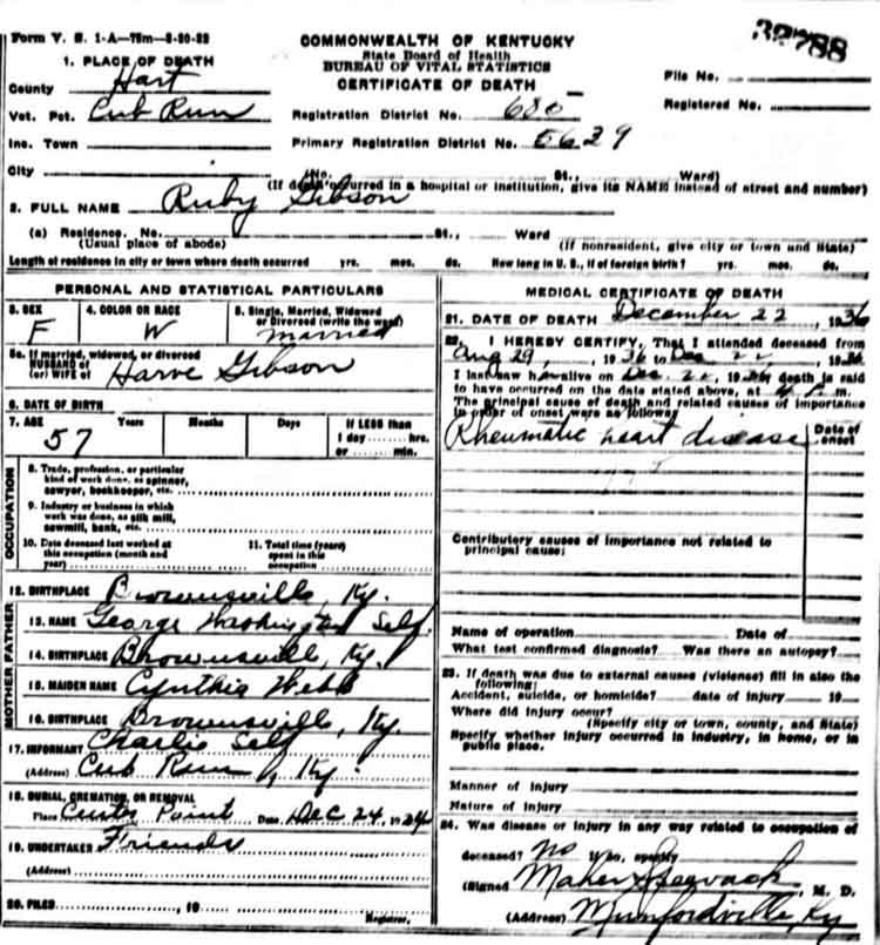 Form V. S. 1-A—75m—8-20-32
32788
COMMONWEALTH OF KENTUCKY
State Board of Health
BUREAU OF VITAL STATISTICS
CERTIFICATE OF DEATH
File No.
Registered No.
1. PLACE OF DEATH
County Hart
Vot. Pct. Cub Run
Inc. Town
City
Registration District No. 680
Primary Registration District No. 5639
(No. St., Ward)
(If death occurred in a hospital or institution, give its NAME instead of street and number)
2. FULL NAME Ruby Gibson
(a) Residence. No. St., Ward
(Usual place of abode) (If nonresident, give city or town and State)
Length of residence in city or town where death occurred yrs. mos. ds. How long in U. S., if of foreign birth? yrs. mos. ds.
PERSONAL AND STATISTICAL PARTICULARS
3. SEX F
4. COLOR OR RACE W
5. Single, Married, Widowed
or Divorced (write the word)
married
5a. If married, widowed, or divorced
HUSBAND of
(or) WIFE of Harve Gibson
6. DATE OF BIRTH
7. AGE Years Months Days If LESS than
57 1 day ........ hrs.
or ........ min.
OCCUPATION
8. Trade, profession, or particular
kind of work done, as spinner,
sawyer, bookkeeper, etc.
9. Industry or business in which
work was done, as silk mill,
sawmill, bank, etc.
10. Date deceased last worked at
this occupation (month and
year)
11. Total time (years)
spent in this
occupation
12. BIRTHPLACE Brownsville, Ky.
FATHER
13. NAME George Washington Self
14. BIRTHPLACE Brownsville, Ky.
MOTHER
15. MAIDEN NAME Cynthia Webb
16. BIRTHPLACE Brownsville, Ky.
17. INFORMANT Charlie Self
(Address) Cub Run, Ky.
18. BURIAL, CREMATION, OR REMOVAL
Place Point Date Dec 24, 19
19. UNDERTAKER Friends
(Address)
20. FILED , 19
Registrar.
MEDICAL CERTIFICATE OF DEATH
21. DATE OF DEATH December 22, 1936
22. I HEREBY CERTIFY, That I attended deceased from
Aug 29, 1936 to Dec 22, 1936
I last saw h alive on Dec. 22, 1936, death is said
to have occurred on the date stated above, at 4 m.
The principal cause of death and related causes of importance
in order of onset were as follows:
Date of
onset
Rheumatic heart disease
Contributory causes of importance not related to
principal cause:
Name of operation Date of
What test confirmed diagnosis? Was there an autopsy?
23. If death was due to external causes (violence) fill in also the
following:
Accident, suicide, or homicide? date of injury 19
Where did injury occur?
(Specify city or town, county, and State)
Specify whether injury occurred in industry, in home, or in
public place.
Manner of injury
Nature of injury
24. Was disease or injury in any way related to occupation of
deceased? No If so, specify
(Signed , M. D.
(Address) Munfordville, Ky